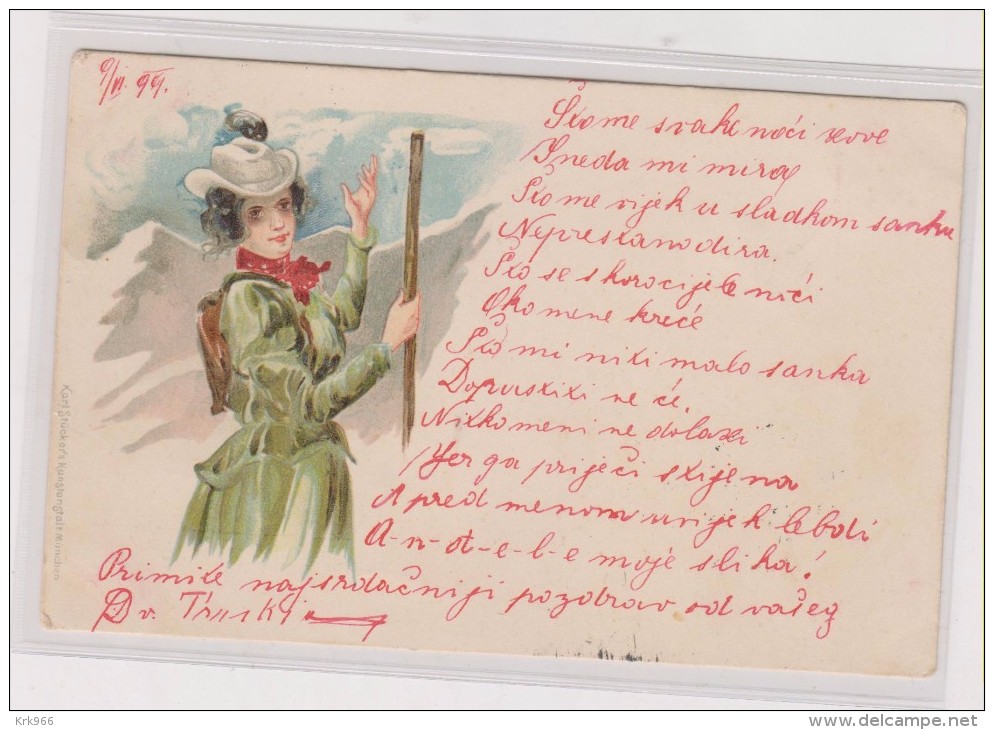 9/VI. 99.
Što me svake noći zove
I neda mi mira
Što me vijek u sladkom sanku
Neprestano dira.
Što se skoro cijele noći
Oko mene kreće
Što mi niti malo sanka
Dopustiti ne će.
Nitko meni ne dolazi
Jer ga prijeći stijena
A pred menom uvijek lebdi
A-n-đ-e-l-e moje slika!
Primite najsrdačniji pozdrav od vašeg
Karl Stücker's Kunstanstalt München
Krk966
delcampe.net